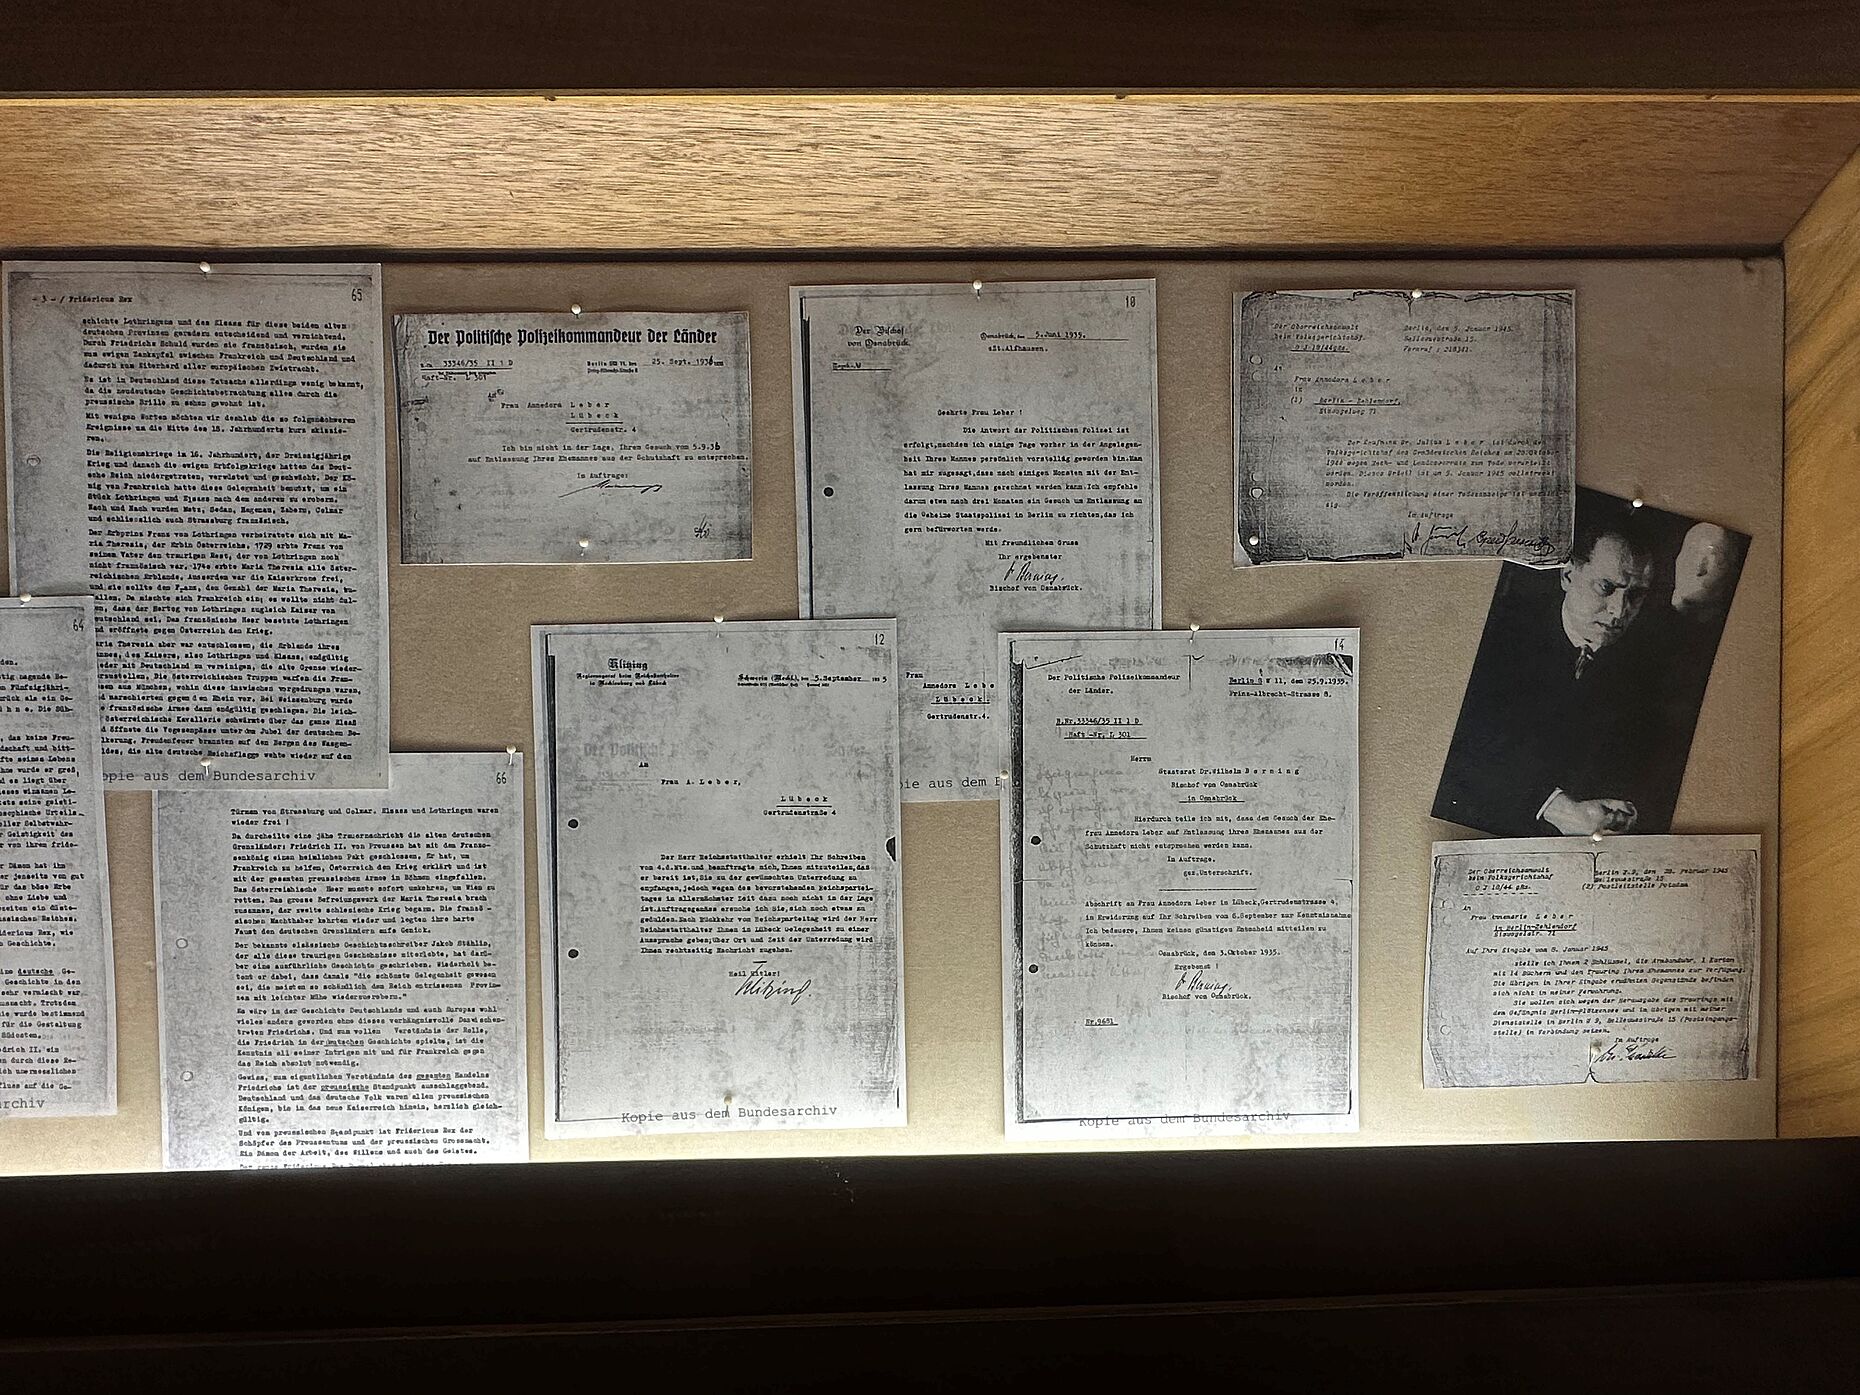 - 3 - / Fridericus Rex
65
schichte Lothringens und des Elsass für diese beiden alten
deutschen Provinzen geradezu entscheidend und vernichtend.
Durch Friedrichs Schuld wurden sie französisch, wurden sie
zum ewigen Zankapfel zwischen Frankreich und Deutschland und
dadurch zum Eiterherd aller europäischen Zwietracht.
Es ist in Deutschland diese Tatsache allerdings wenig bekannt,
da die neudeutsche Geschichtsbetrachtung alles durch die
preussische Brille zu sehen gewohnt ist.
Mit wenigen Worten möchten wir deshalb die so folgenschweren
Ereignisse um die Mitte des 18. Jahrhunderts kurz skizzie-
ren.
Die Religionskriege im 16. Jahrhundert, der Dreissigjährige
Krieg und danach die ewigen Erbfolgekriege hatten das Deut-
sche Reich niedergetreten, verwüstet und geschwächt. Der Kö-
nig von Frankreich hatte diese Gelegenheit benutzt, um ein
Stück Lothringen und Elsass nach dem anderen zu erobern.
Nach und Nach wurden Metz, Sedan, Hagenau, Zabern, Colmar
und schliesslich auch Strassburg französisch.
Der Erbprinz Franz von Lothringen verheiratete sich mit Ma-
ria Theresia, der Erbin Österreichs, 1729 erbte Franz von
seinem Vater den traurigen Rest, der von Lothringen noch
nicht französisch war. 1740 erbte Maria Theresia alle öster-
reichischen Erblande. Ausserdem war die Kaiserkrone frei,
und sie sollte den Franz, dem Gemahl der Maria Theresia,
allen. Da mischte sich Frankreich ein; es wollte nicht dul-
en, dass der Herzog von Lothringen zugleich Kaiser von
eutschland sei. Das französische Heer besetzte Lothringen
nd eröffnete gegen Österreich den Krieg.
aria Theresia aber war entschlossen, die Erblande ihres
annes, des Kaisers, also Lothringen und Elsass, endgültig
eder mit Deutschland zu vereinigen, die alte Grenze wieder-
erzustellen. Die österreichischen Truppen warfen die Fran-
sen aus München, wohin diese inzwischen vorgedrungen waren,
nd marschierten gegen den Rhein vor. Bei Weissenburg wurde
e französische Armee dann endgültig geschlagen. Die leich-
österreichische Kavallerie schwärmte über das ganze Elsaß
d öffnete die Vogesenpässe unter dem Jubel der deutschen Be-
lkerung. Freudenfeuer brannten auf den Bergen des Wasgen-
ldes, die alte deutsche Reichsflagge wehte wieder auf den
opie aus dem Bundesarchiv
64
rchiv
66
Türmen von Strassburg und Colmar. Elsass und Lothringen waren
wieder frei !
Da durcheilte eine jähe Trauernachricht die alten deutschen
Grenzländer: Friedrich II. von Preussen hat mit dem Franzo-
senkönig einen heimlichen Pakt geschlossen. Er hat, um
Frankreich zu helfen, Österreich den Krieg erklärt und ist
mit der gesamten preussischen Armee in Böhmen eingefallen.
Das österreichische Heer musste sofort umkehren, um Wien zu
retten. Das grosse Befreiungswerk der Maria Theresia brach
zusammen, der zweite schlesische Krieg begann. Die franzö -
sischen Machthaber kehrten wieder und legten ihre harte
Faust den deutschen Grenzländern aufs Genick.
Der bekannte elsässische Geschichtsschreiber Jakob Stählin,
der alle diese traurigen Geschehnisse miterlebte, hat darü-
ber eine ausführliche Geschichte geschrieben. Wiederholt be-
tont er dabei, dass damals "die schönste Gelegenheit gewesen
sei, die meisten so schändlich dem Reich entrissenen Provin-
zen mit leichter Mühe wiederzuerobern."
Es wäre in der Geschichte Deutschlands und auch Europas wohl
vieles anders geworden ohne dieses verhängnisvolle Dazwischen-
treten Friedrichs. Und zum vollen Verständnis der Rolle,
die Friedrich in der deutschen Geschichte spielte, ist die
Kenntnis all seiner Intrigen mit und für Frankreich gegen
das Reich absolut notwendig.
Gewiss, zum eigentlichen Verständnis des gesamten Handelns
Friedrichs ist der preussische Standpunkt ausschlaggebend.
Deutschland und das deutsche Volk waren allen preussischen
Königen, bis in das neue Kaiserreich hinein, herzlich gleich-
gültig.
Und vom preussischen Standpunkt ist Fridericus Rex der
Schöpfer des Preussentums und der preussischen Grossmacht.
Ein Dämon der Arbeit, des Willens und auch des Geistes.
Der Politische Polizeikommandeur der Länder
33346/35 II 1 D
Haft-Nr. L 301
Berlin SW 11, den
25. Sept. 1936
Prinz-Albrecht-Straße 8
An
Frau Annedora Leber
Lübeck
Gertrudenstr. 4
Ich bin nicht in der Lage, Ihrem Gesuch vom 5.9.36
auf Entlassung Ihres Ehemannes aus der Schutzhaft zu entsprechen.
Im Auftrage:
10
Der Bischof
von Osnabrück.
Osnabrück, den 5. Juni 1935.
zZt. Alfhausen.
Geehrte Frau Leber !
Die Antwort der Politischen Polizei ist
erfolgt, nachdem ich einige Tage vorher in der Angelegen-
heit Ihres Mannes persönlich vorstellig geworden bin. Man
hat mir zugesagt, dass nach einigen Monaten mit der Ent-
lassung Ihres Mannes gerechnet werden kann. Ich empfehle
darum etwa nach drei Monaten ein Gesuch um Entlassung an
die Geheime Staatspolizei in Berlin zu richten, das ich
gern befürworten werde.
Mit freundlichem Gruss
Ihr ergebenster
Bischof von Osnabrück.
Frau
Annedora Lebe
Lübeck.
Gertrudenstr. 4.
pie aus dem B
12
Klitzing
Regierungsrat beim Reichsstatthalter
in Mecklenburg und Lübeck
Schwerin (Meckl.), den 5. September
An
Frau A. Leber,
Lübeck
Gertrudenstraße 4
Der Herr Reichsstatthalter erhielt Ihr Schreiben
von 4.d.Mts. und beauftragte mich, Ihnen mitzuteilen, daß
er bereit ist, Sie zu der gewünschten Unterredung zu
empfangen, jedoch wegen des bevorstehenden Reichspartei-
tages in allernächster Zeit dazu noch nicht in der Lage
ist. Auftragsgemäss ersuche ich Sie, sich noch etwas zu
gedulden. Nach Rückkehr vom Reichsparteitag wird der Herr
Reichsstatthalter Ihnen in Lübeck Gelegenheit zu einer
Aussprache geben; über Ort und Zeit der Unterredung wird
Ihnen rechtzeitig Nachricht zugehen.
Heil Hitler!
Klitzing.
Kopie aus dem Bundesarchiv
14
Der Politische Polizeikommandeur
der Länder.
Berlin S W 11, den 25.9.1935.
Prinz-Albrecht-Strasse 8.
B.Nr. 33346/35 II 1 D
Haft -Nr. L 301
Herrn
Staatsrat Dr. Wilhelm Berning
Bischof von Osnabrück
in Osnabrück
Hierdurch teile ich mit, dass dem Gesuch der Ehe-
frau Annedora Leber auf Entlassung ihres Ehemannes aus der
Schutzhaft nicht entsprochen werden kann.
Im Auftrage.
gez. Unterschrift.
Abschrift an Frau Annedora Leber in Lübeck, Gertrudenstrasse 4,
in Erwiderung auf Ihr Schreiben vom 6. September zur Kenntnisnahme
Ich bedauere, Ihnen keinen günstigen Entscheid mitteilen zu
können.
Osnabrück, den 3. Oktober 1935.
Ergebenst !
Bischof von Osnabrück.
Nr. 9681
Kopie aus dem Bundesarchiv
Der Oberreichsanwalt
beim Volksgerichtshof.
O J 18/44gRs.
Berlin, den 5. Januar 1945.
Bellevuestraße 15.
Fernruf : 218341.
An
Frau Annedora Leber
in
(1) Berlin - Zehlendorf,
Eisvogelweg 71
Der Kaufmann Dr. Julius Leber ist durch
Volksgerichtshof des Großdeutschen Reiches am 20. Oktober
1944 wegen Hoch- und Landesverrats zum Tode verurteilt
worden. Dieses Urteil ist am 5. Januar 1945 vollstreckt
worden.
Die Veröffentlichung einer Todesanzeige ist
sig.
Im Auftrage
Der Oberreichsanwalt
beim Volksgerichtshof
O J 18/44 gRs.
Berlin W 9, den 28. Februar 1945
Bellevuestraße 15
(2) Postleitstelle Potsdam
An
Frau Annemarie Leber
in Berlin-Zehlendorf
71
Auf Ihre Eingabe vom 8. Januar 1945
stelle ich Ihnen 2 Schlüssel, die Armbanduhr, 1 Karton
mit 14 Büchern und den Trauring Ihres Ehemannes zur Verfügung.
Die übrigen in Ihrer Eingabe erwähnten Gegenstände befinden
sich nicht in meiner Verwahrung.
Sie wollen sich wegen der Herausgabe des Trauringes mit
dem Gefängnis Berlin-Plötzensee und im übrigen mit meiner
Dienststelle in Berlin W 9, Bellevuestraße 15 (Posteingangs-
stelle) in Verbindung setzen.
Im Auftrage